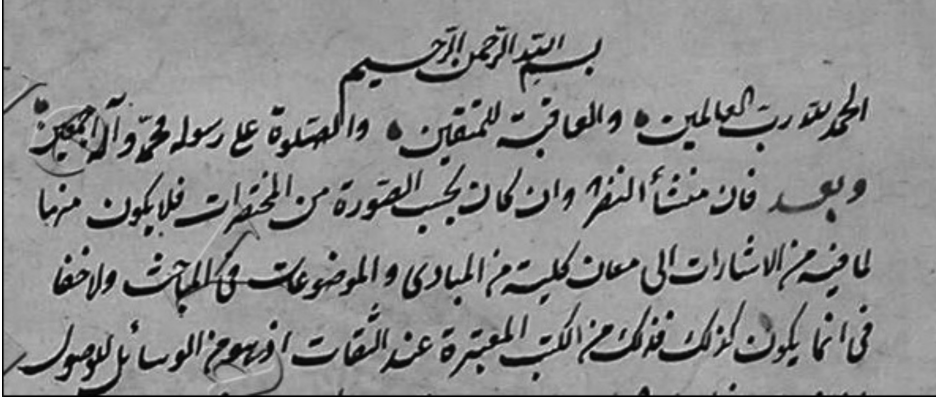 بسم الله الرحمن الرحيم
الحمد لله رب العالمين والعاقبة للمتقين والصلوة على رسوله محمد وآله اجمعين
وبعد فان منشأ النظر وان كان بحسب الصورة من المختصرات فلا يكون منها
لما فيه من الاشارات الى معان كلية من المبادى والموضوعات والمباحث ولا خفا
فى انما يكون كذلك فذلك من الكتب المعتبرة عند الثقات اذ هو من الوسائل للوصول